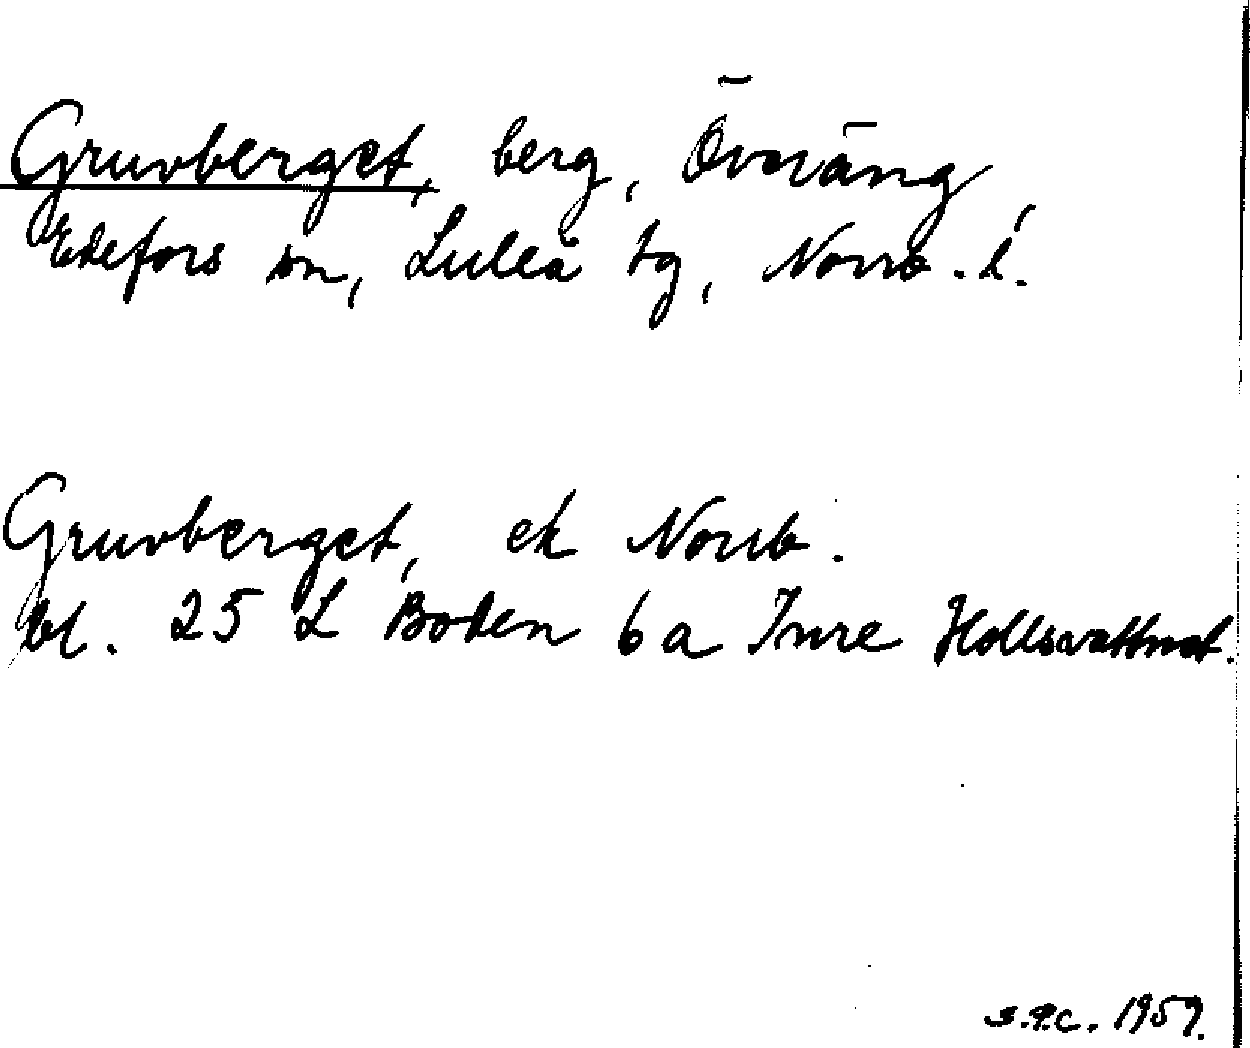 Gruvberget, berg, Överäng
Edefors sn, Luleå tg, Norrb. l.
Gruvberget, ek Norrb.
bl. 25 L Boden 6 a Inre Hollsvattnet.
1959.